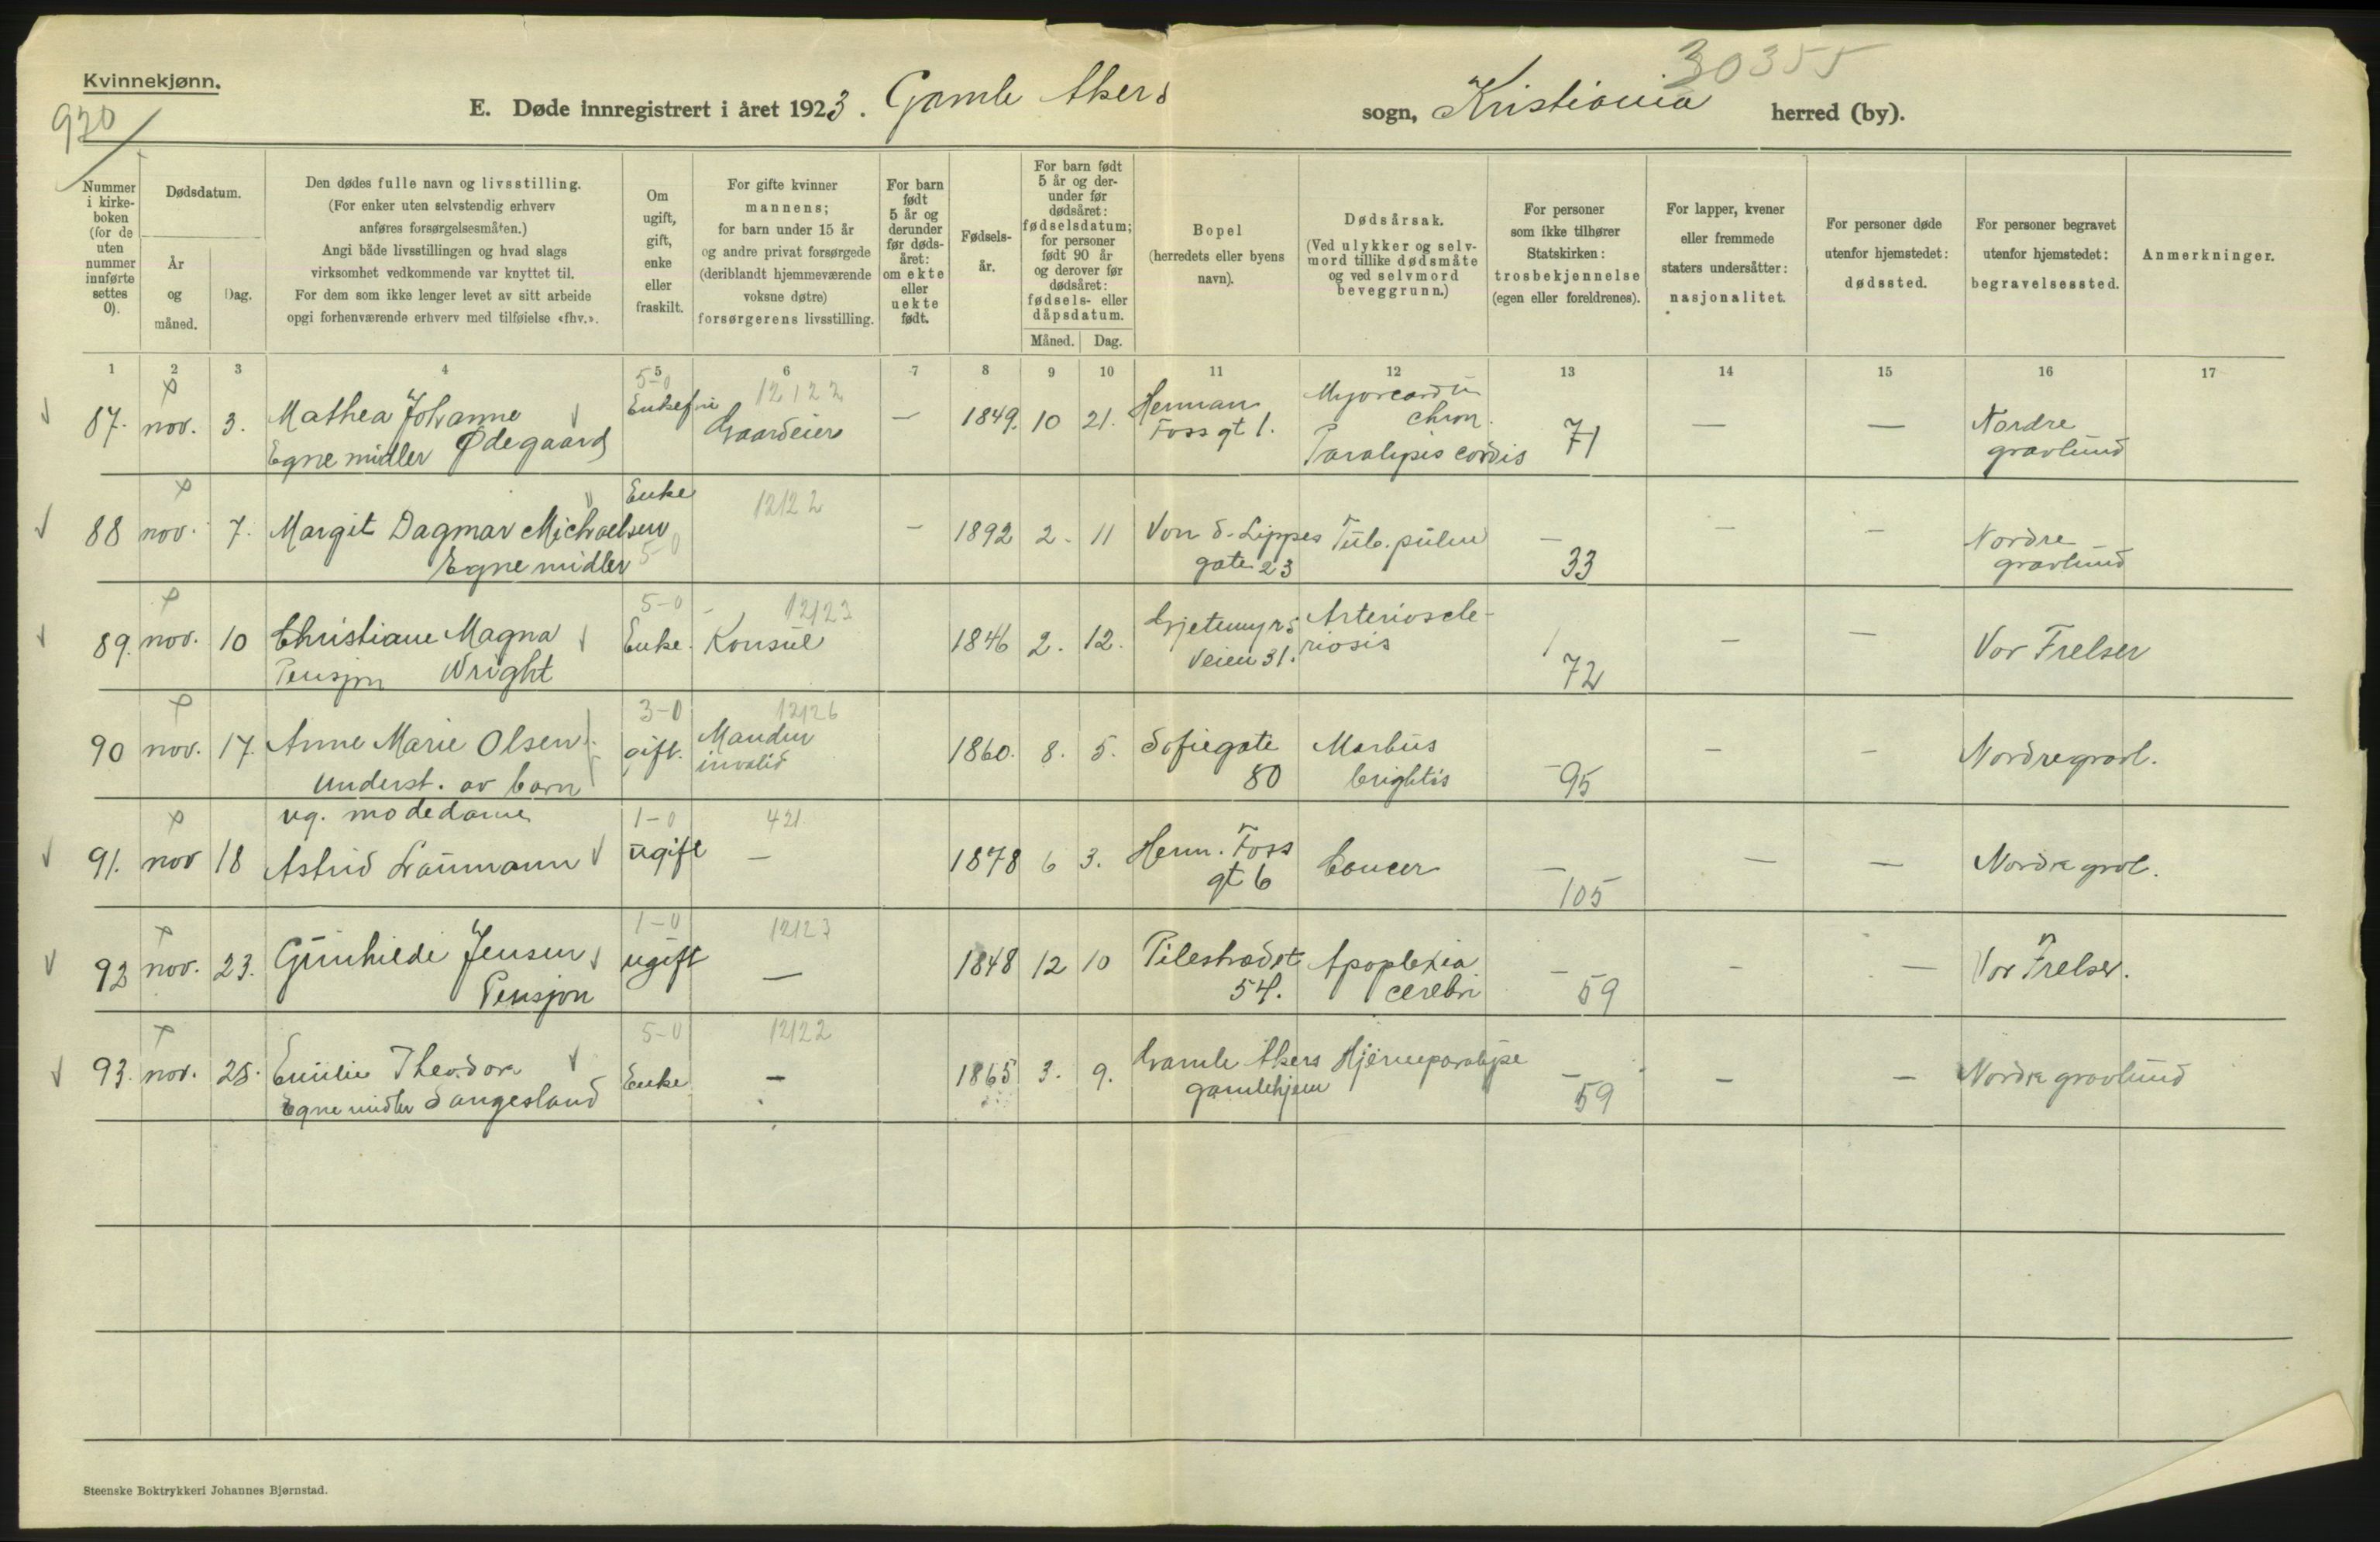 Kvinnekjønn.
920
30355
E. Døde innregistrert i året 1923. Gamle Akers sogn, Kristiania herred (by).
Nummer i kirke-boken (for de uten nummer innførte settes 0).
Dødsdatum.
År og måned.
Dag.
Den dødes fulle navn og livsstilling.
(For enker uten selvstendig erhverv
anføres forsørgelsesmåten.)
Angi både livsstillingen og hvad slags
virksomhet vedkommende var knyttet til.
For dem som ikke lenger levet av sitt arbeide
opgi forhenværende erhverv med tilføielse «fhv.».
Om
ugift,
gift,
enke
eller
fraskilt.
For gifte kvinner
mannens;
for barn under 15 år
og andre privat forsørgede
(deriblandt hjemmeværende
voksne døtre)
forsørgerens livsstilling.
For barn
født
5 år og
derunder
før døds-
året:
om ekte
eller
uekte
født.
Fødsels-
år.
For barn født
5 år og der-
under før
dødsåret:
fødselsdatum;
for personer
født 90 år
og derover før
dødsåret:
fødsels- eller
dåpsdatum.
Måned. Dag.
Bopel
(herredets eller byens
navn).
Dødsårsak.
(Ved ulykker og selv-
mord tillike dødsmåte
og ved selvmord
beveggrunn.)
For personer
som ikke tilhører
Statskirken:
trosbekjennelse
(egen eller foreldrenes).
For lapper, kvener
eller fremmede
staters undersåtter:
nasjonalitet.
For personer døde
utenfor hjemstedet:
dødssted.
For personer begravet
utenfor hjemstedet:
begravelsessted.
Anmerkninger.
1 2 3 4 5 6 7 8 9 10 11 12 13 14 15 16 17
5-0 12122
87. nov. 3. Mathea Johanne Ødegaard
Egne midler
Gaardeier — 1849. 10 21. Herman
Foss gt 1.
chron.
Paralysis cordis 71 — — Nordre
gravlund
88 nov. 7. Margit Dagmar Michaelsen
Egne midler 5-0
Enke 12122 — 1892 2. 11 Von d. Lippes
gate 23
Tub. pulm — 33 — — Nordre
gravlund
5-0 12123
89. nov. 10 Christiane Magna
Pensjon Wright
Enke. Konsul 1846 2. 12. Gjetemyrs
veien 31.
Arterioscle-
riosis 72 — — Vor Frelser
3-0 12126
90 nov. 17. Anne Marie Olsen
Underst. av barn
gift. Manden
invalid 1860. 8. 5. Sofiegate
80
Morbus
brightis — 95 — — Nordre gravl.
ug. modedame 1-0 421
91. nov 18 Astrid Laumann
ugift — 1878 6 3. Herm. Foss
gt 6
Cancer — 105 — — Nordre grvl.
1-0 12123
92 nov. 23. Gunhilde Jensen
Pensjon
ugift — 1848 12 10 Pilestrædet
54.
Apoplexia
cerebri — 59 — — Vor Frelser.
5-0 12122
93. nov. 25. Emilie Theodora
Egne midler Sangesland
Enke — 1865 3. 9. Gamle Akers
gamlehjem
Hjerneparalyse — 59 — — Nordre gravlund
Steenske Boktrykkeri Johannes Bjørnstad.